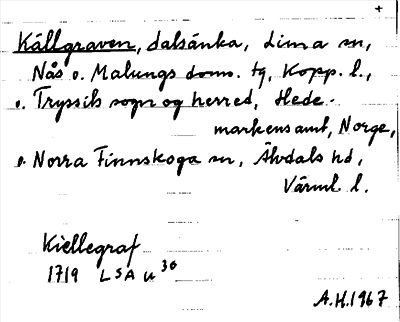 +
Källgraven, dalsänka, Lima sn,
Nås o. Malungs doms. tg, Kopp. l.,
o. Tryssils sogn og herred, Hede-
markensamt, Norge,
o. Norra Finnskoga sn, Älvdals hd,
Värml l.
Kiellegraf
1719 LSA u 36
A.H. 1967